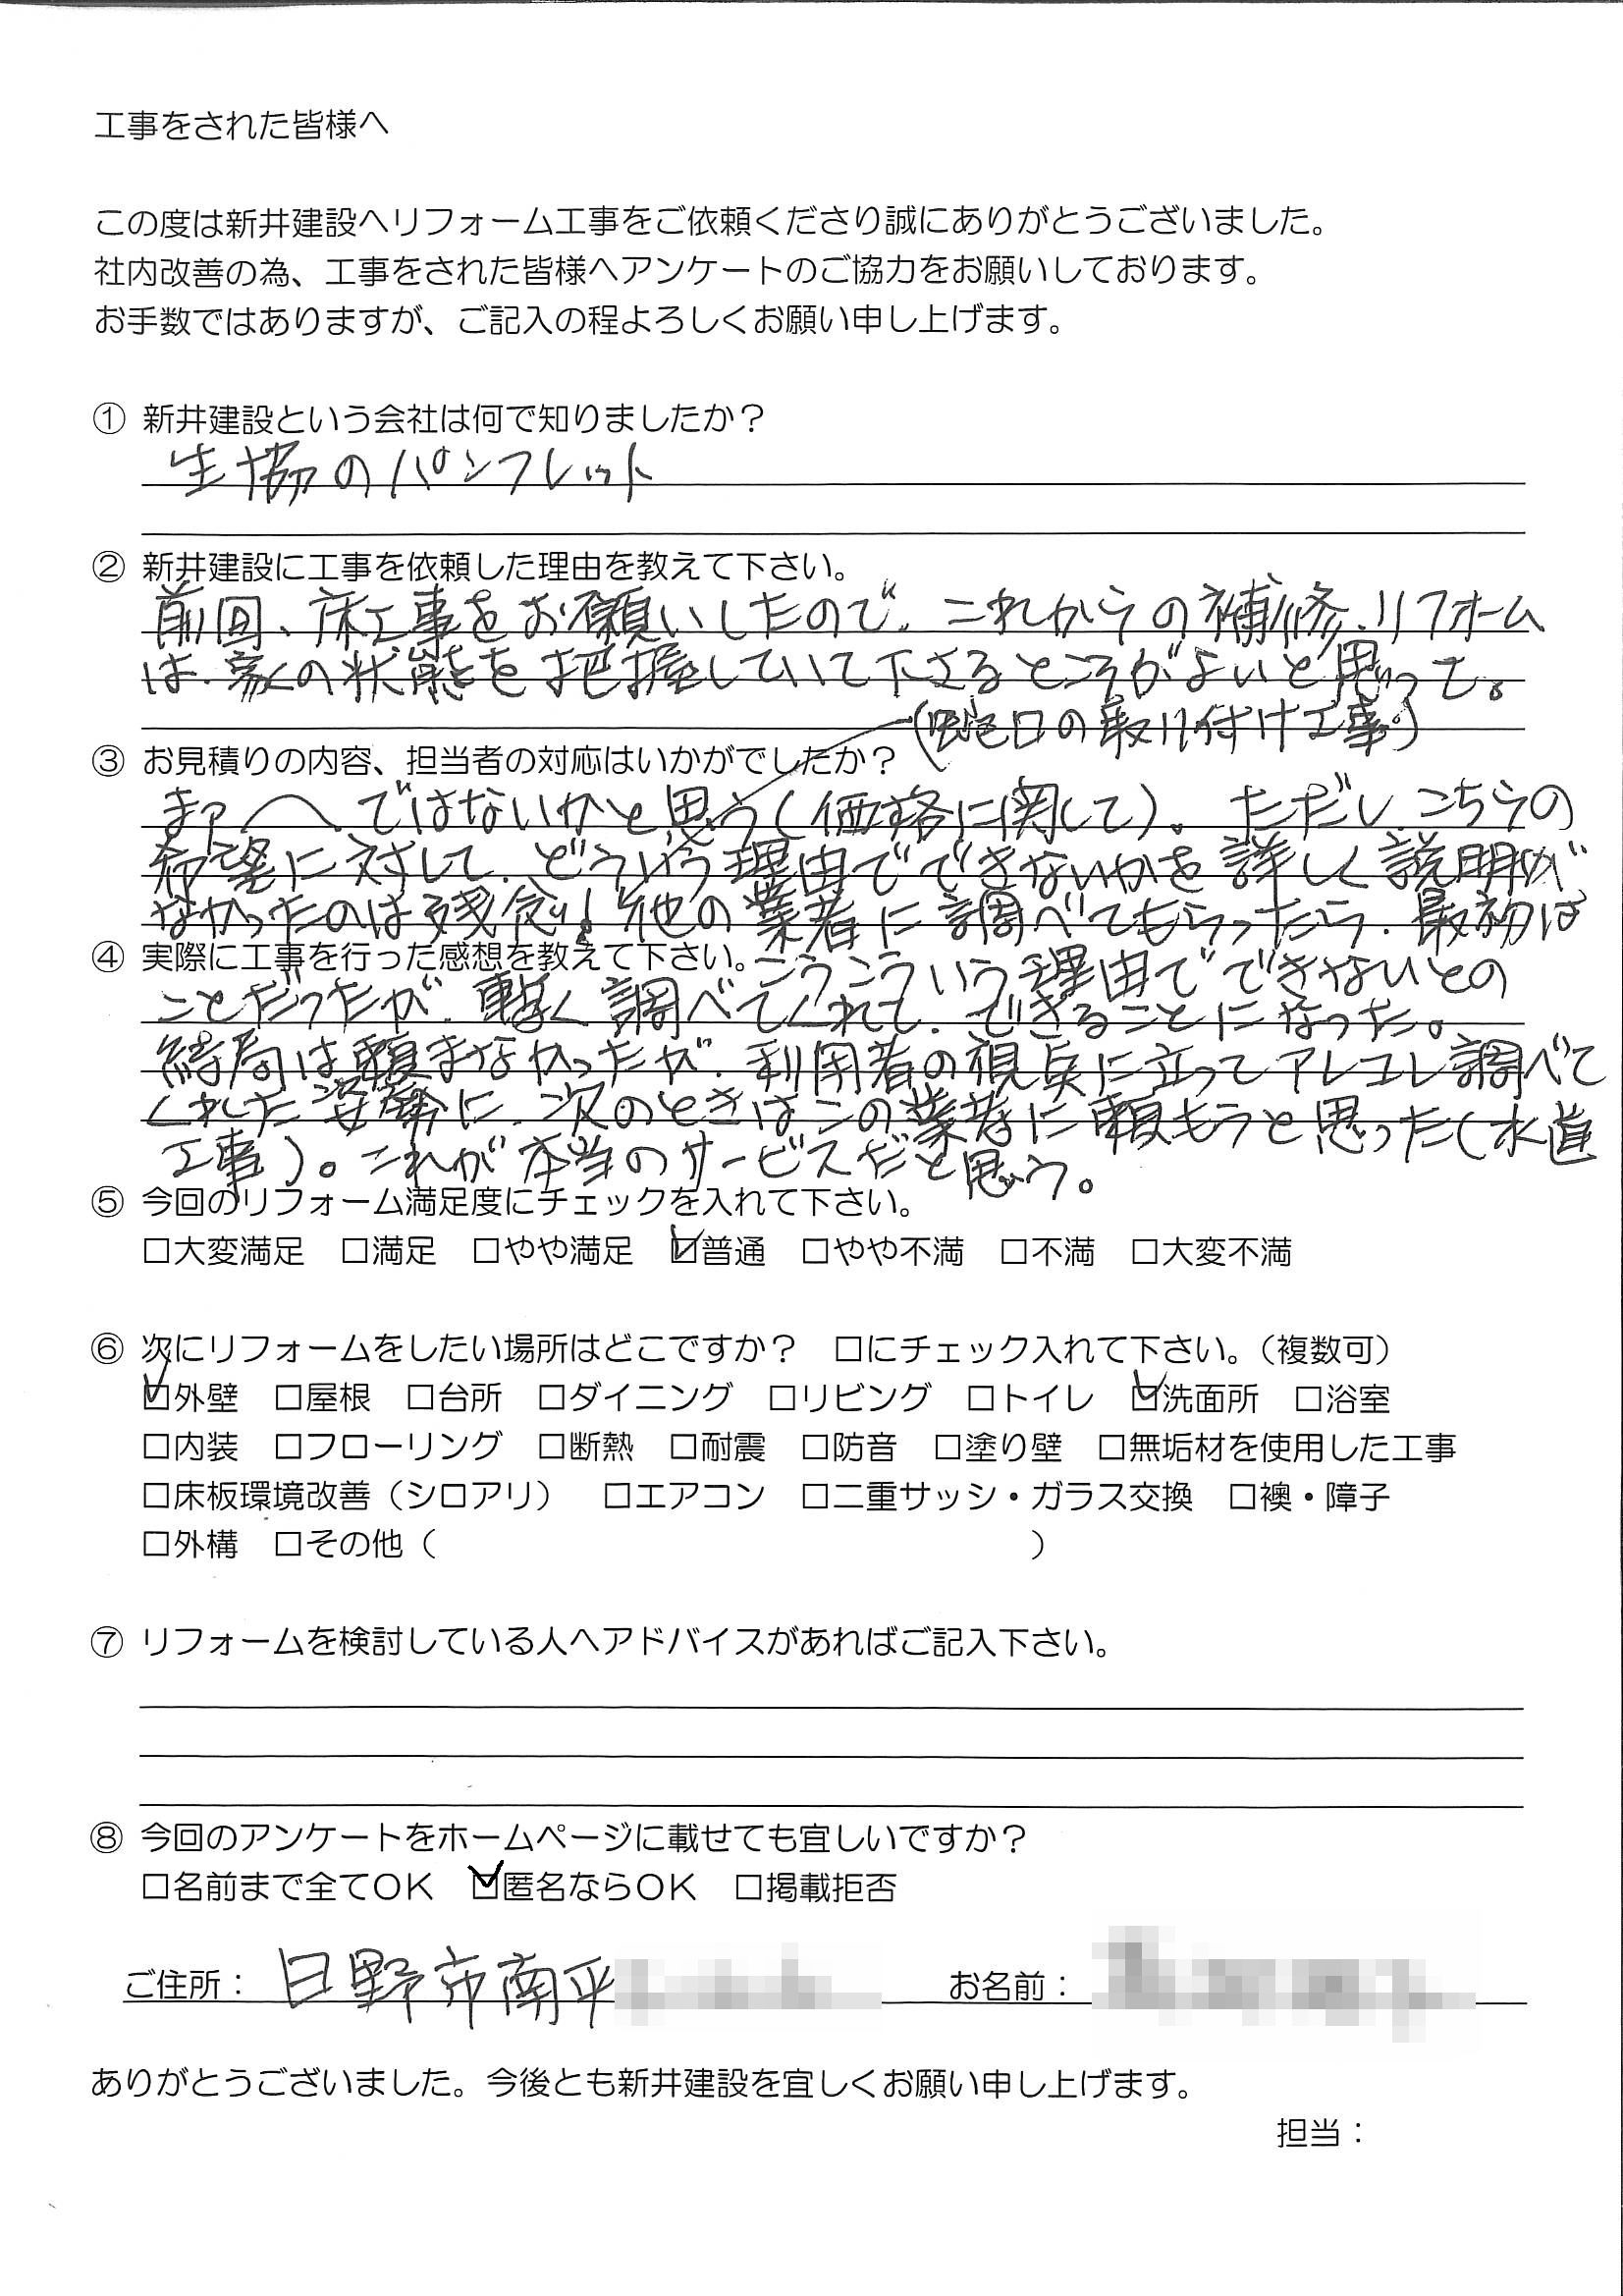 工事をされた皆様へ
この度は新井建設へリフォーム工事をご依頼くださり誠にありがとうございました。
社内改善の為、工事をされた皆様へアンケートのご協力をお願いしております。
お手数ではありますが、ご記入の程よろしくお願い申し上げます。
① 新井建設という会社は何で知りましたか？
生協のパンフレット
② 新井建設に工事を依頼した理由を教えて下さい。
前回、床工事をお願いしたので、これからの補修、リフォーム
は、家の状態を把握していて下さるところがよいと思って。
(蛇口の取り付け工事)
③ お見積りの内容、担当者の対応はいかがでしたか？
まァ へ ではないかと思う(価格に関して)。ただし、こちらの
希望に対して、どういう理由でできないかを詳しく説明が
なかったのは残念! 他の業者に調べてもらったら、最初は
④ 実際に工事を行った感想を教えて下さい。こうこういう理由でできないとの
ことだったが、 調べてくれて、できることになった。
結局は頼まなかったが、利用者の視点に立ってアレコレ調べて
くれた姿勢に、次のときはこの業者に頼もうと思った(水道
工事)。これが本当のサービスだと思う。
⑤ 今回のリフォーム満足度にチェックを入れて下さい。
□大変満足 □満足 □やや満足 ☑普通 □やや不満 □不満 □大変不満
⑥ 次にリフォームをしたい場所はどこですか？ □にチェック入れて下さい。（複数可）
☑外壁 □屋根 □台所 □ダイニング □リビング □トイレ ☑洗面所 □浴室
□内装 □フローリング □断熱 □耐震 □防音 □塗り壁 □無垢材を使用した工事
□床板環境改善（シロアリ） □エアコン □二重サッシ・ガラス交換 □襖・障子
□外構 □その他（ ）
⑦ リフォームを検討している人へアドバイスがあればご記入下さい。
⑧ 今回のアンケートをホームページに載せても宜しいですか？
□名前まで全てOK ☑匿名ならOK □掲載拒否
ご住所： 日野市南平 お名前：
ありがとうございました。今後とも新井建設を宜しくお願い申し上げます。
担当：